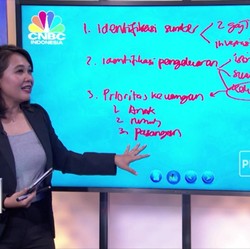 CNBC
INDONESIA
1. Identifikasi sumber
2 gaji
2. Identifikasi pengeluaran
3. Prioritas keuangan
1. Anak
2. rumah
3. pasangan